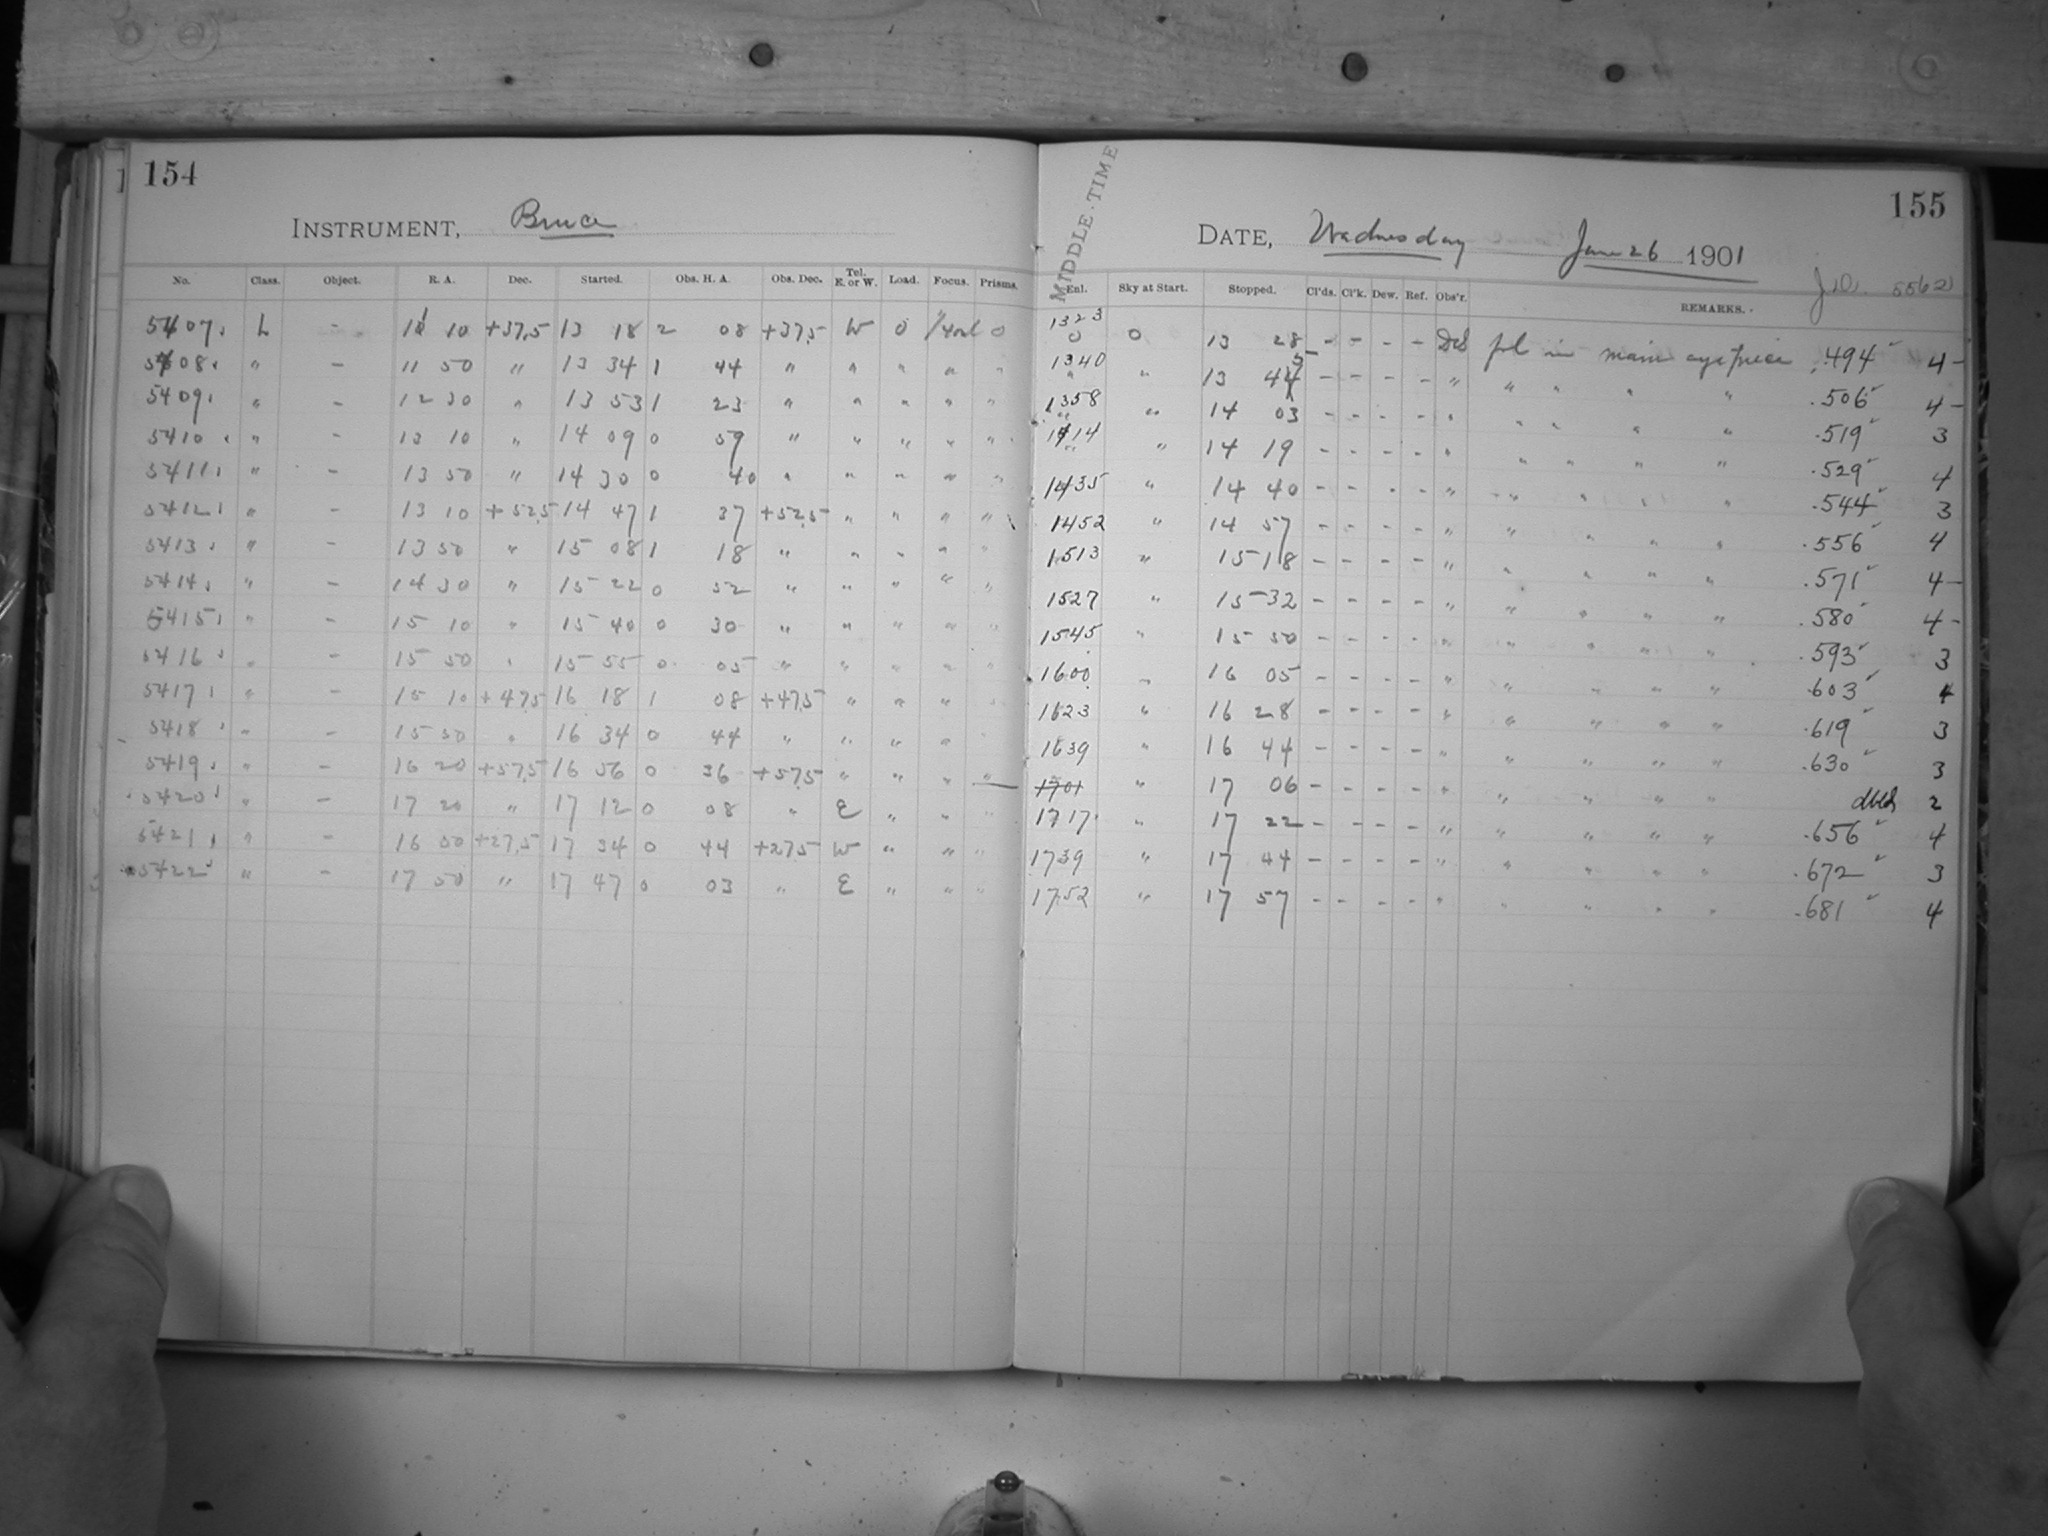 154
INSTRUMENT, Bruce
No. Class. Object. R. A. Dec. Started. Obs. H. A. Obs. Dec. Tel. E. or W. Load. Focus. Prisms.
5407 L - 11 10 +37.5 13 18 2 08 +37.5 W 0 0
5408 " - 11 50 " 13 34 1 44 " " " " "
5409 " - 12 30 " 13 53 1 23 " " " " "
5410 " - 13 10 " 14 09 0 59 " " " " "
5411 " - 13 50 " 14 30 0 40 " " " " "
5412 " - 13 10 +52.5 14 47 1 37 +52.5 " " " "
5413 " - 13 50 " 15 08 1 18 " " " " "
5414 " - 14 30 " 15 22 0 52 " " " " "
5415 " - 15 10 " 15 40 0 30 " " " " "
5416 " - 15 50 " 15 55 0 05 " " " " "
5417 " - 15 10 +47.5 16 18 1 08 +47.5 " " " "
5418 " - 15 50 " 16 34 0 44 " " " " "
5419 " - 16 20 +57.5 16 56 0 36 +57.5 " " " "
5420 " - 17 20 " 17 12 0 08 " E " " "
5421 " - 16 50 +27.5 17 34 0 44 +27.5 W " " "
5422 " - 17 50 " 17 47 0 03 " E " " "
155
MIDDLE TIME
DATE, Wednesday June 26 1901
J.D. 5562
Enl. Sky at Start. Stopped. Cl'ds. Cl'k. Dew. Ref. Obs'r. REMARKS.
1323 0 0 13 28 - - - - in main eyepiece .494 4-
1340 " " 13 44 5 - - - - " " " " " .506 4-
1358 " " 14 03 - - - - " " " " " .519 3
1414 " " 14 19 - - - - " " " " " .529 4
1435 " 14 40 - - - - " " " " " .544 3
1452 " 14 57 - - - - " " " " " .556 4
1513 " 15 18 - - - - " " " " " .571 4-
1527 " 15 32 - - - - " " " " " .580 4-
1545 " 15 50 - - - - " " " " " .593 3
1600 " 16 05 - - - - " " " " " .603 4
1623 " 16 28 - - - - " " " " " .619 3
1639 " 16 44 - - - - " " " " " .630 3
1701 " 17 06 - - - - " " " " " dbld 2
1717 " 17 22 - - - - " " " " " .656 4
1739 " 17 44 - - - - " " " " " .672 3
1752 " 17 57 - - - - " " " " " .681 4